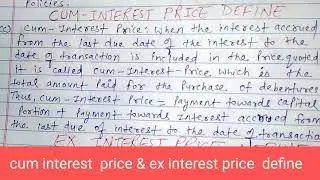 Policies:
CUM-INTEREST PRICE DEFINE
(c) Cum-Interest Price: When the interest accrued
from the last due date of the interest to the
date of transaction is included in the price quoted
it is called cum-interest-price, which is the
total amount Paid for the Purchase of debentures
Thus, cum-Interest Price = Payment towards capital
Portion + Payment towards Interest accrued from
the last due of interest to the date of transaction
EX INTEREST PRICE DEFINE
cum interest price & ex interest price define